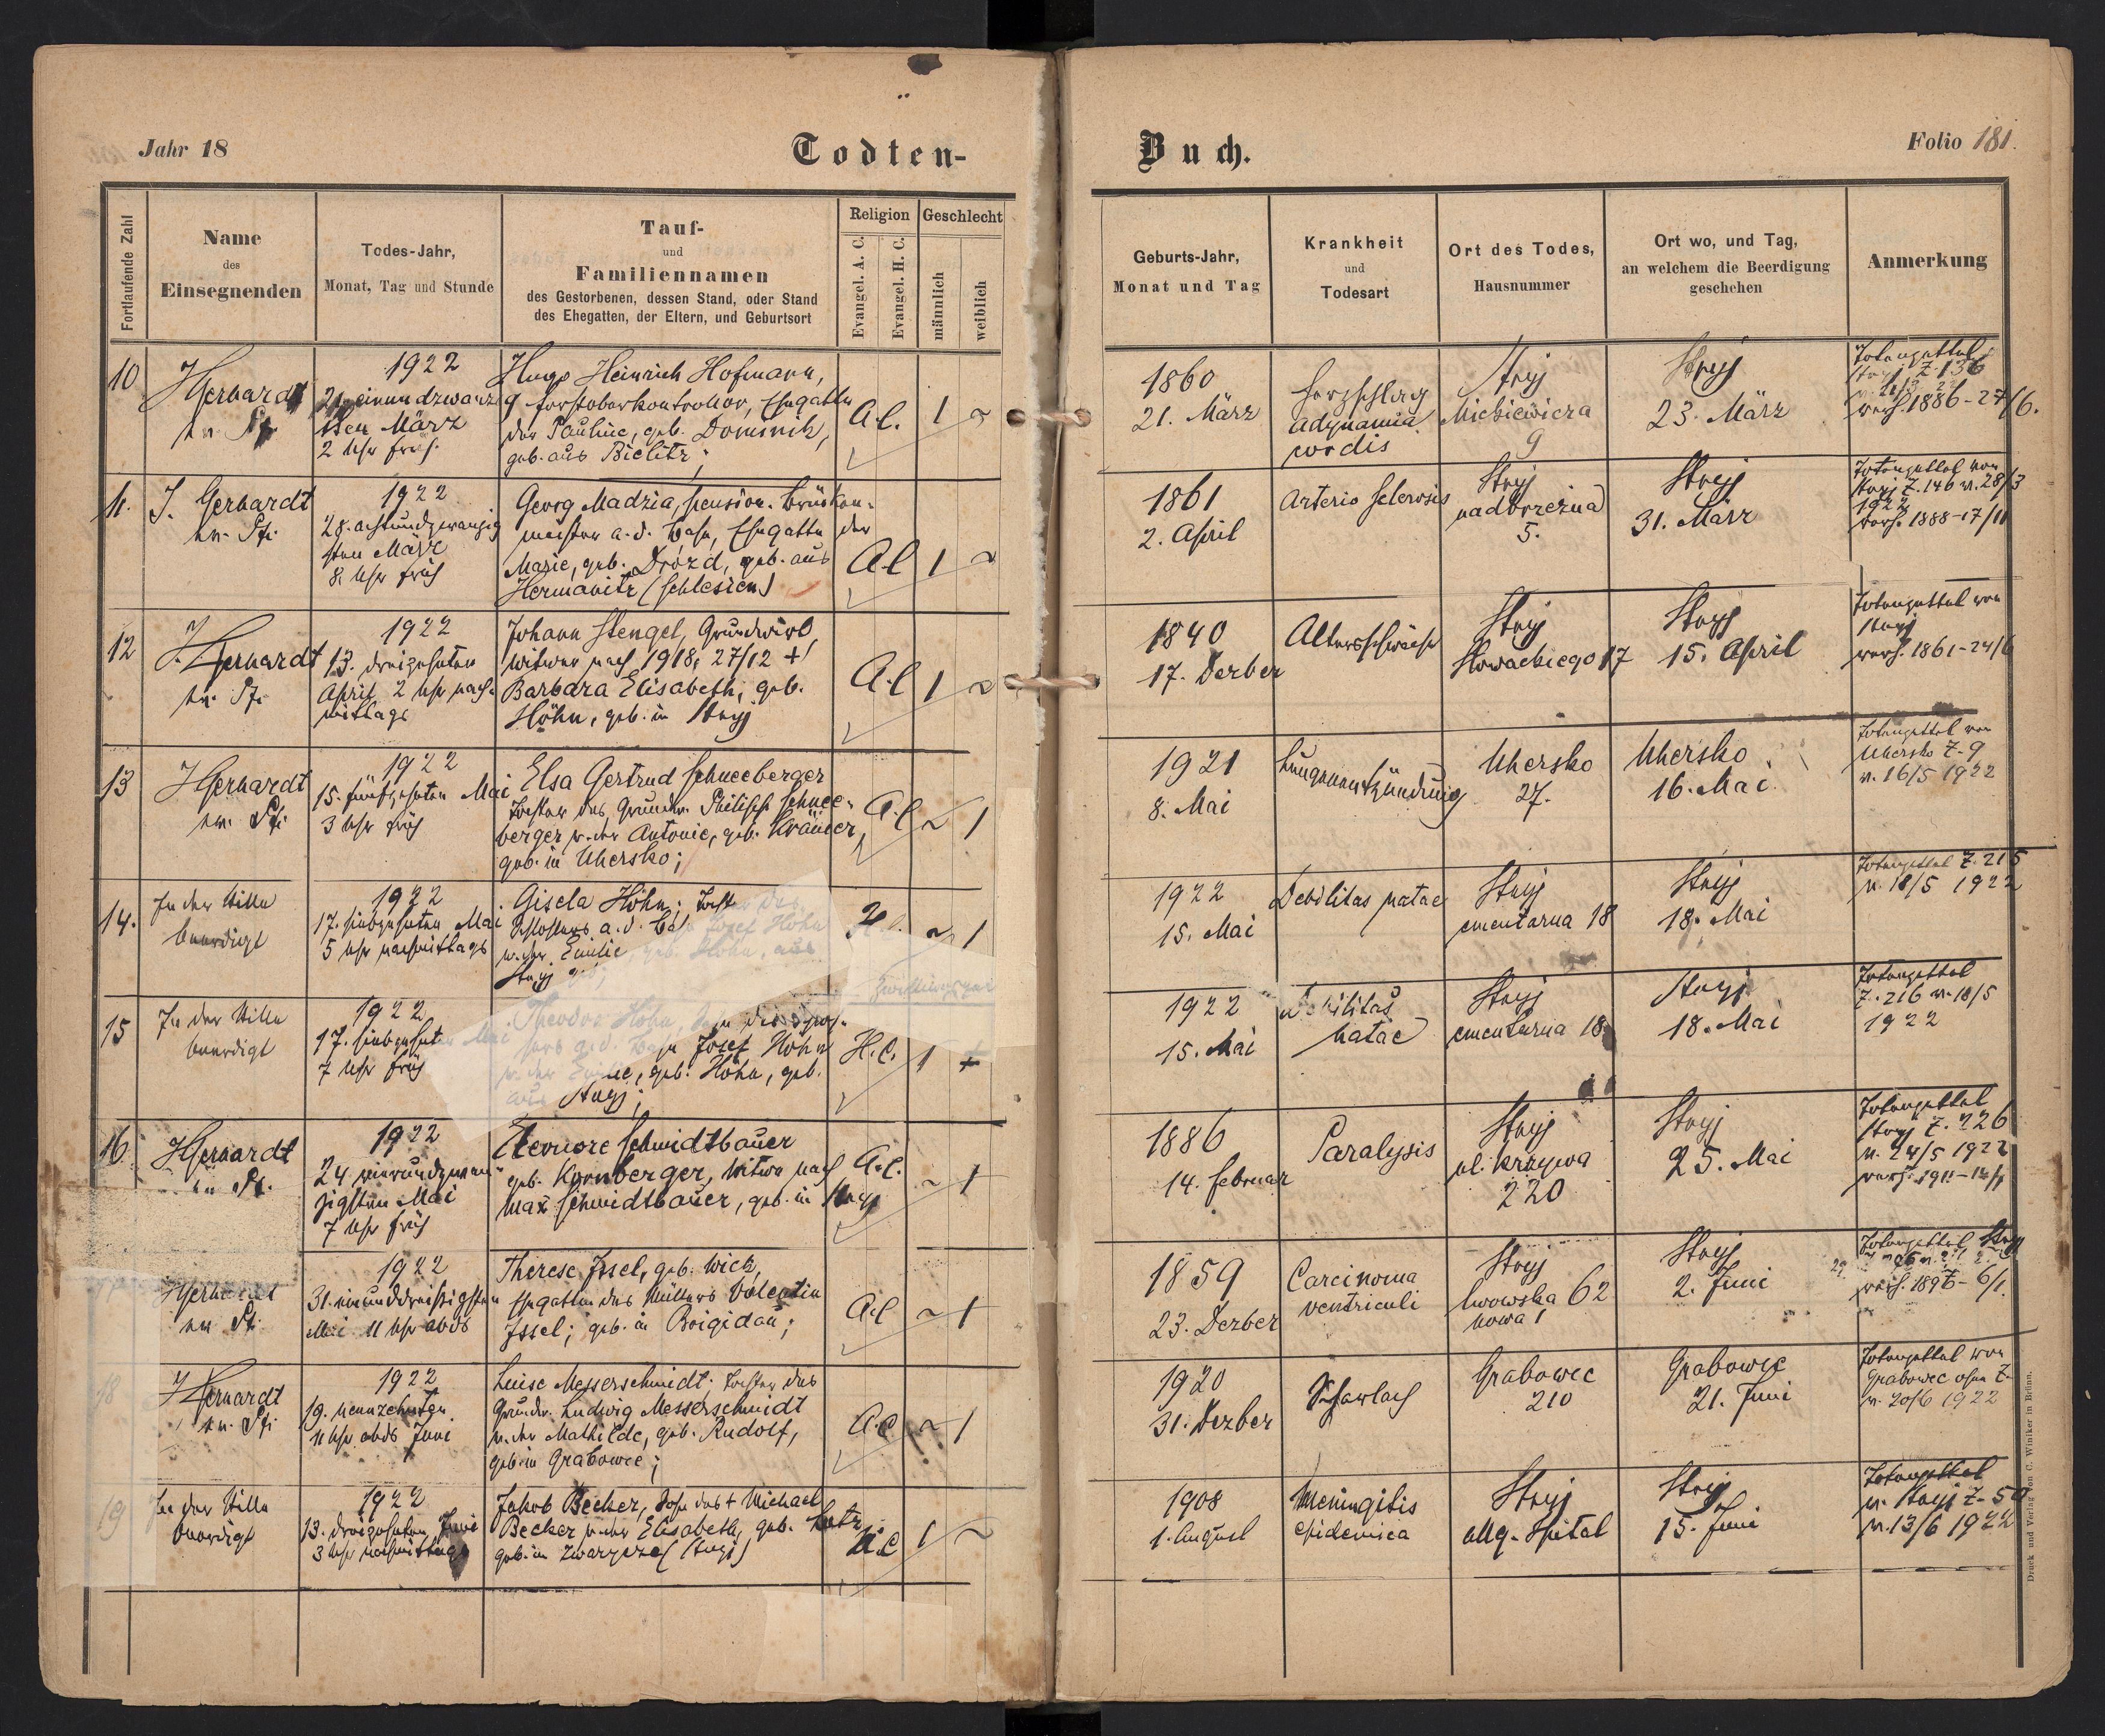 Jahr 18
Todten-
Buch.
Folio 181.
Fortlaufende Zahl
Name
des
Einsegnenden
Todes-Jahr,
Monat, Tag und Stunde
Tauf-
und
Familiennamen
des Gestorbenen, dessen Stand, oder Stand
des Ehegatten, der Eltern, und Geburtsort
Religion
Evangel. A. C.
Evangel. H. C.
Geschlecht
männlich
weiblich
Geburts-Jahr,
Monat und Tag
Krankheit
und
Todesart
Ort des Todes,
Hausnummer
Ort wo, und Tag,
an welchem die Beerdigung
geschehen
Anmerkung
10
JGerhardt
ev. Pf.
1922
21. einundzwanzig
sten März
2 Uhr früh.
Hugo Heinrich Hofmann,
Forstoberkontrollor, Ehegatte
der Pauline, geb. Dominik,
geb. aus Bielitz;
A.C.
1
~
1860
21. März
Herzschlag
adynamia
cordis
Stryj
Mickiewicza
9
Stryj
23. März
Totenzettel
Stryj Z 136
verh. 1886-27/6.
11.
J. Gerhardt
ev. Pf.
1922
28. achtundzwanzig
sten März
8 Uhr früh
Georg Madzia, pension. Brücken-
meister a. d. Bahn, Ehegatte der
Marie, geb. Drózd, geb. aus
Hermanitz (Schlesien)
A.C
1
~
1861
2. April
Arterio sclerosis
Stryj
nadbrzeżna
5.
Stryj
31. März
Totenzettel von
Stryj Z. 146 v. 28/3
1922
verh. 1888-17/11
12
J. Gerhardt
ev. Pf.
1922
13. dreizehnten
April 2 Uhr nach-
mittags
Johann Stengel, Grundwirt,
Witwer nach 1918, 27/12 +
Barbara Elisabeth, geb.
Höhn, geb. in Stryj
A.C
1
~
1840
17. Dezber
Altersschwäche
Stryj
Słowackiego 17
Stryj
15. April
Totenzettel von
Stryj
verh. 1861-24/6
13
JGerhardt
ev. Pf.
1922
15. fünfzehnten Mai
3 Uhr früh
Elsa Gertrud Schneeberger
Tochter des Grundw. Philipp Schnee-
berger u. der Antonie, geb. Krämer,
geb. in Uhersko;
A.C
~
1
1921
8. Mai
Lungenentzündung
Uhersko
27.
Uhersko
16. Mai.
Totenzettel von
Uhersko Z-9
v. 16/5 1922
14.
In der Stille
beerdigt
1922
17. siebzehnten Mai
5 Uhr nachmittags
Gisela Höhn; Tocht des
Schlossers a. d. Bahn Josef Höhn
u. der Emilie, geb. Höhn, aus
Stryj
~
1
1922
15. Mai
Debilitas natae
Stryj
cmentarna 18
Stryj
18. Mai
Totenzettel Z. 215
v. 18/5 1922
15
In der Stille
beerdigt
1922
17. siebzehnten Mai
7 Uhr früh
Theodor Höhn, Sohn des Schlos-
sers a. d. Bahn Josef Höhn
u. der Emilie, geb. Höhn, geb.
aus Stryj;
H.C.
1
1922
15. Mai
Debilitas
natae
Stryj
cmentarna 18
Stryj
18. Mai
Totenzettel
Z. 216 v. 18/5
1922
16
JGerhardt
ev. Pf.
1922
24 vierundzwan-
zigsten Mai
7 Uhr früh
Eleonore Schmidtbauer
geb. Kornberger, Witwe nach
Max Schmidtbauer, geb. in Stryj
A.C.
~
1
1886
14. Februar
Paralysis
Stryj
ul. Krzywa
220
Stryj
25. Mai
Totenzettel
Stryj Z. 226
v. 24/5 1922
JGerhardt
ev. Pf.
1922
31. einunddreißigsten
Mai 11 Uhr abds
Therese Issel, geb. Wick,
Ehegattin des Müllers Valentin
Issel; geb. in Brigidau;
A.C
~
1
1859
23. Dezber
Carcinoma
ventriculi
Stryj
lwowska 62
nowa
Stryj
2. Juni
Totenzettel Stryj
18
JGerhardt
ev. Pf.
1922
19. neunzehnten
11 Uhr abds Juni
Luise Messerschmidt; Tochter des
Grundw. Ludwig Messerschmidt
u. der Mathilde, geb. Rudolf,
geb. in Grabowce;
A.C
~
1
1920
31. Dezber
Scharlach
Grabowce
210
Grabowce
21. Juni
Totenzettel von
Grabowce ohne Z-
v. 20/6 1922
19
In der Stille
beerdigt
1922
13. dreizehnten Juni
3 Uhr nachmittags
Jakob Becker, Sohn des + Michael
Becker u. der Elisabeth, geb. Lutz
geb. in Zwarycze (Stryj)
1
~
1908
1. August
Meningitis
epidemica
Stryj
allg. Spital
Stryj
15. Juni
Totenzettel
v. Stryj Z-50
v. 13/6 1922
Druck und Verlag von C. Winiker in Brünn.